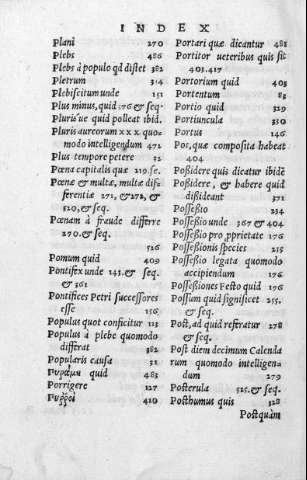 INDEX
Plani 270
Plebs 486
Plebs à populo qd distet 382
Pletrum 314
Plebiscitum unde 151
Plus minus, quid 176 & seq.
Pluris'ue quid polleat ibid.
Pluris aureorum xxx quo-
modo intelligendum 472
Plus tempore petere 32
Pœna capitalis quæ 219. se.
Pœnæ & multæ, multæ dif-
ferentiæ 271, & 272, &
320, & seq.
Pœnam à fraude differre
270. & seq.
326
Pomum quid 409
Pontifex unde 143. & seq.
& 361
Pontifices Petri successores
esse 156
Populus quot conficitur 113
Populus à plebe quomodo
differat 382
Popularis causa 31
quid 483
Porrigere 127
410
Portari quæ dicantur 481
Portitor ueteribus quis sit
403. 417
Portorium quid 403
Portentum 83
Portio quid 329
Portiuncula 330
Portus 146
Pos, quæ composita habeat
404
Possidere quis dicatur ibidē
Possidere, & habere quid
distdeant 371
Possessio 234
Possessio unde 367 & 404
Possessio pro proprietate 176
Possessionis species 255
Possessio legata quomodo
accipiendum 176
Possessiones Festo quid 176
Possum quid significet 255.
& seq.
Post, ad quid referatur 278
& seq.
Post diem decimum Calenda
rum quomodo intelligen-
dum 279
Posterula 525. & seq.
Posthumus quis 328
Postquàm